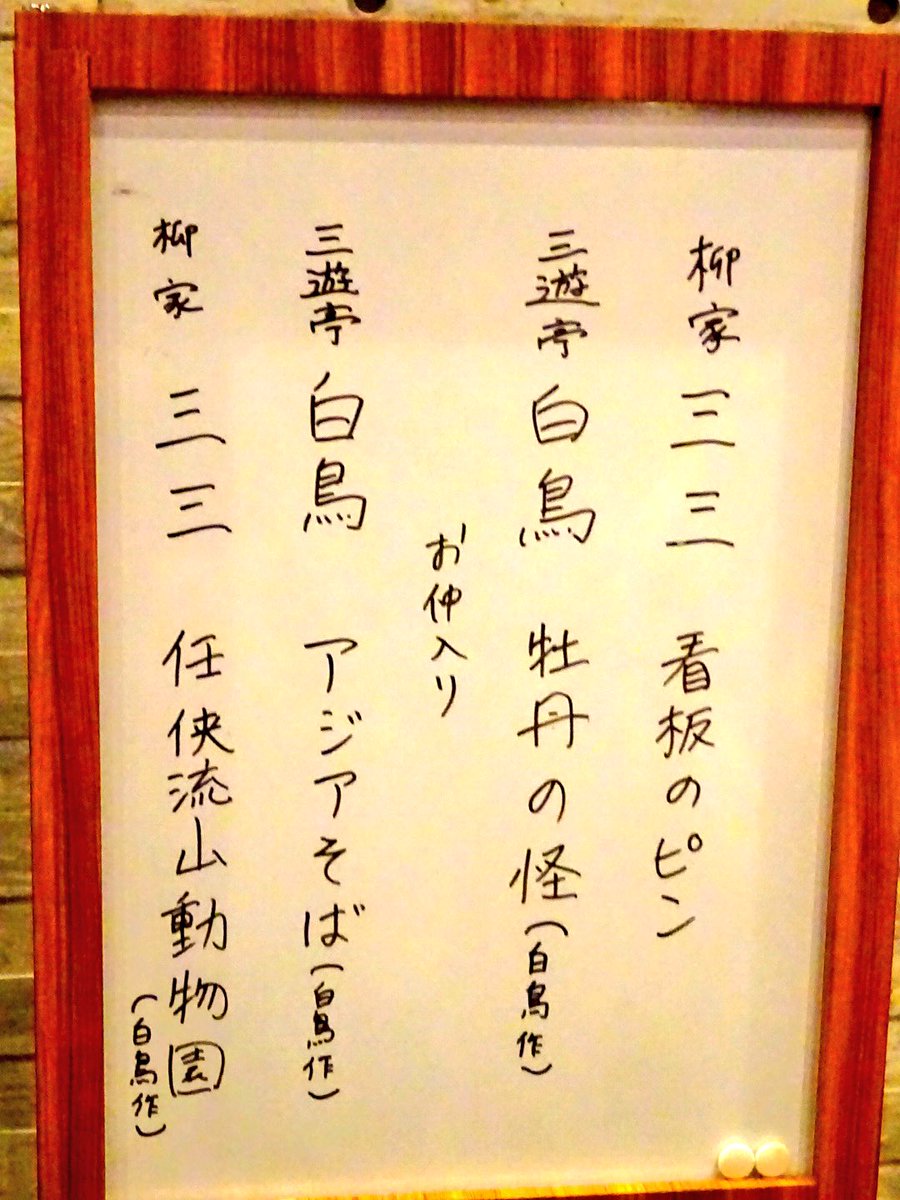 柳家 三三 看板のピン
三遊亭 白鳥 牡丹の怪(白鳥作)
お仲入り
三遊亭 白鳥 アジアそば(白鳥作)
柳家 三三 任侠流山動物園
(白鳥作)